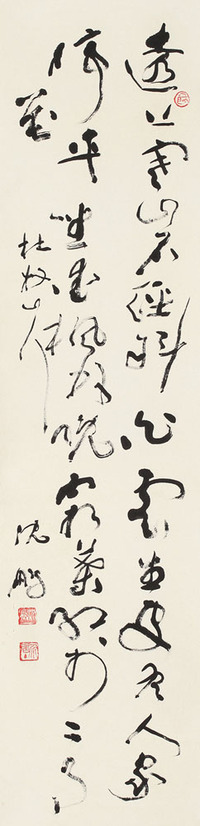 遠上寒山石徑斜白雲生處有人家
停車坐愛楓林晚霜葉紅於二月
花
杜牧山行
沈鵬